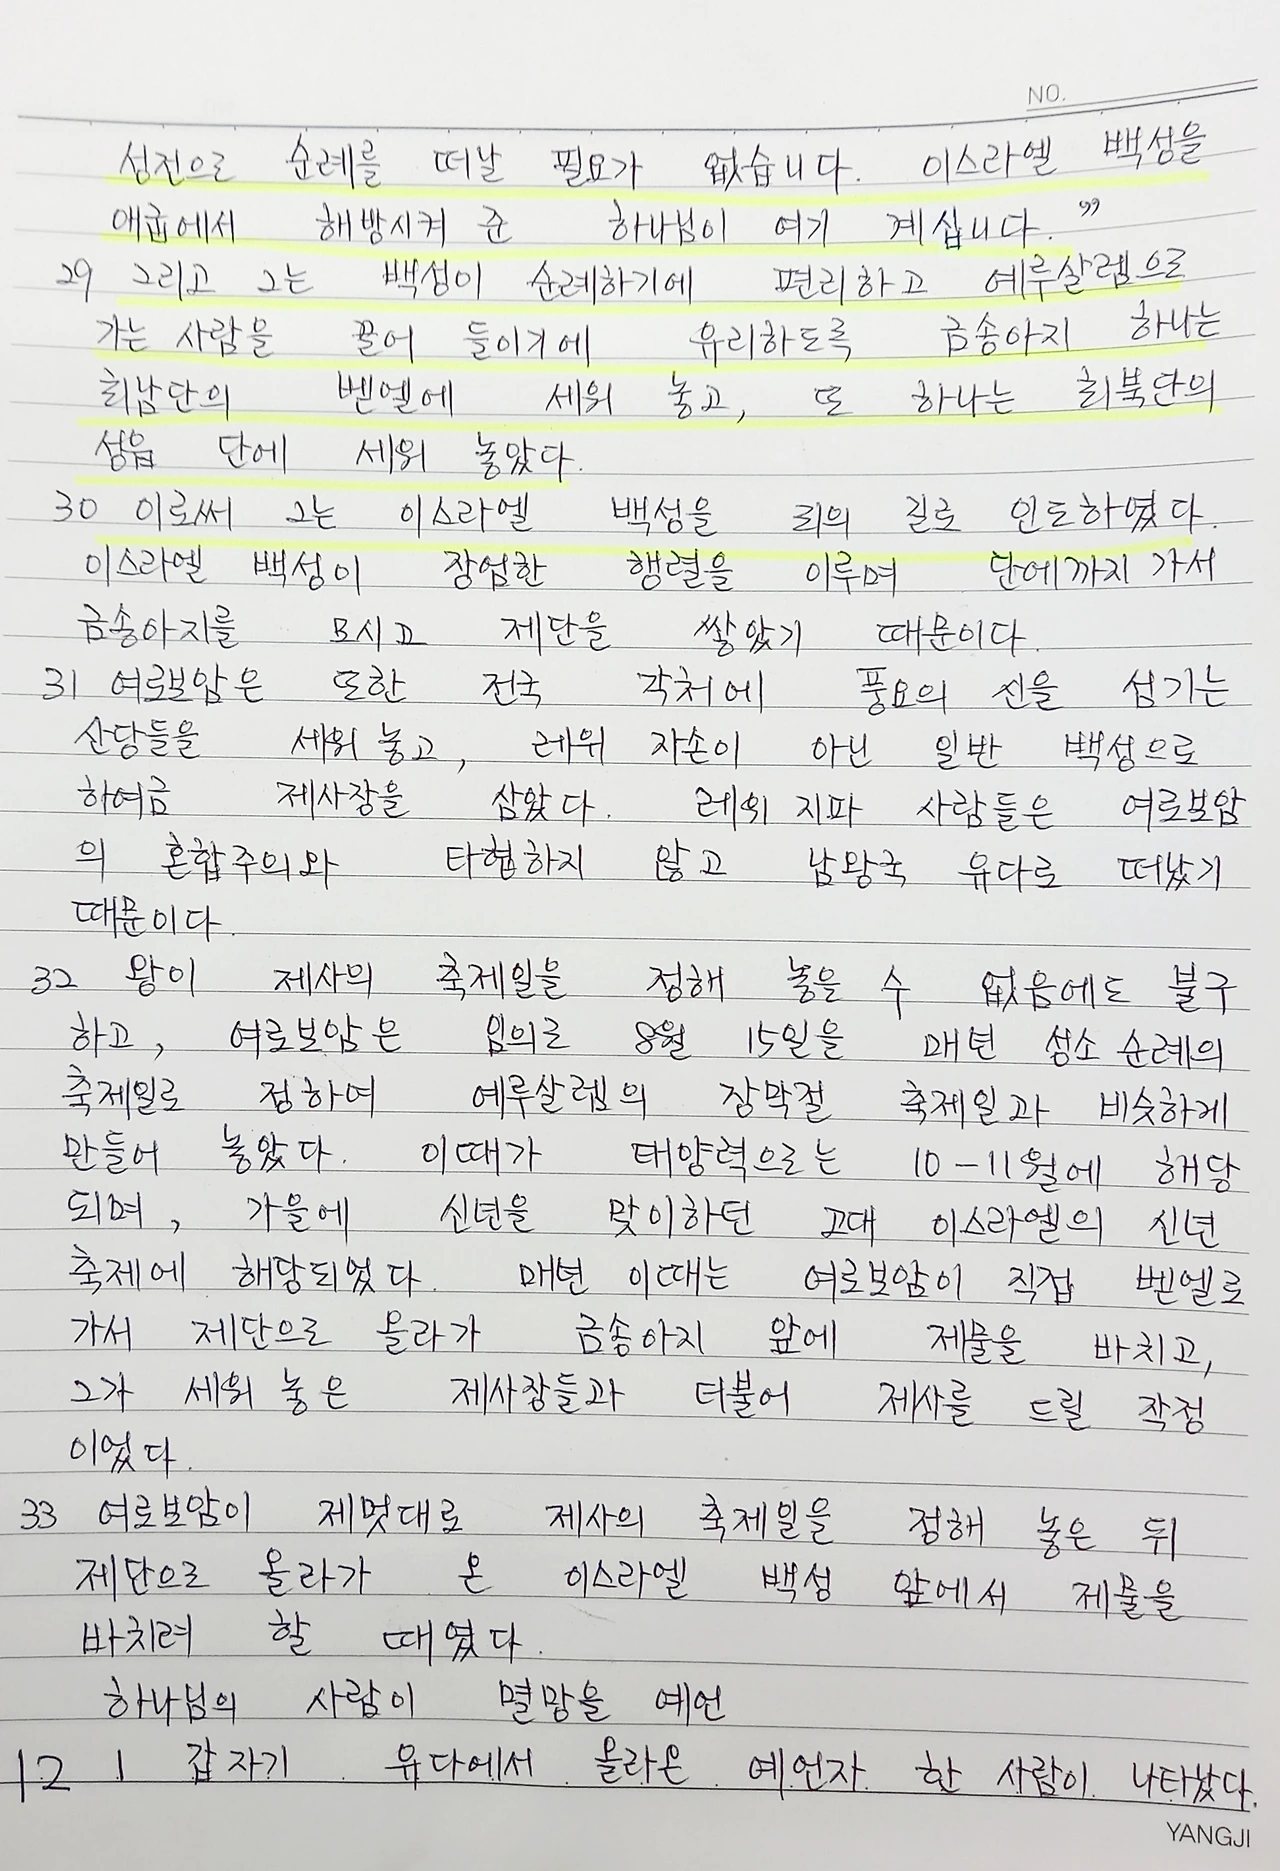 NO.
성전으로 순례를 떠날 필요가 없습니다. 이스라엘 백성을
애굽에서 해방시켜 준 하나님이 여기 계십니다.”
29 그리고 그는 백성이 순례하기에 편리하고 예루살렘으로
가는 사람을 끌어 들이기에 유리하도록 금송아지 하나는
최남단의 벧엘에 세워 놓고, 또 하나는 최북단의
성읍 단에 세워 놓았다.
30 이로써 그는 이스라엘 백성을 죄의 길로 인도하였다.
이스라엘 백성이 장엄한 행렬을 이루며 단에까지 가서
금송아지를 모시고 제단을 쌓았기 때문이다.
31 여로보암은 또한 전국 각처에 풍요의 신을 섬기는
산당들을 세워 놓고, 레위 자손이 아닌 일반 백성으로
하여금 제사장을 삼았다. 레위 지파 사람들은 여로보암
의 혼합주의와 타협하지 않고 남왕국 유다로 떠났기
때문이다.
32 왕이 제사의 축제일을 정해 놓을 수 없음에도 불구
하고, 여로보암은 임의로 8월 15일을 매년 성소 순례의
축제일로 정하여 예루살렘의 장막절 축제일과 비슷하게
만들어 놓았다. 이때가 태양력으로는 10-11월에 해당
되며, 가을에 신년을 맞이하던 고대 이스라엘의 신년
축제에 해당되었다. 매년 이때는 여로보암이 직접 벧엘로
가서 제단으로 올라가 금송아지 앞에 제물을 바치고,
그가 세워 놓은 제사장들과 더불어 제사를 드릴 작정
이었다.
33 여로보암이 제멋대로 제사의 축제일을 정해 놓은 뒤
제단으로 올라가 온 이스라엘 백성 앞에서 제물을
바치려 할 때였다.
하나님의 사람이 멸망을 예언
12 1 갑자기 유다에서 올라온 예언자 한 사람이 나타났다.
YANGJI